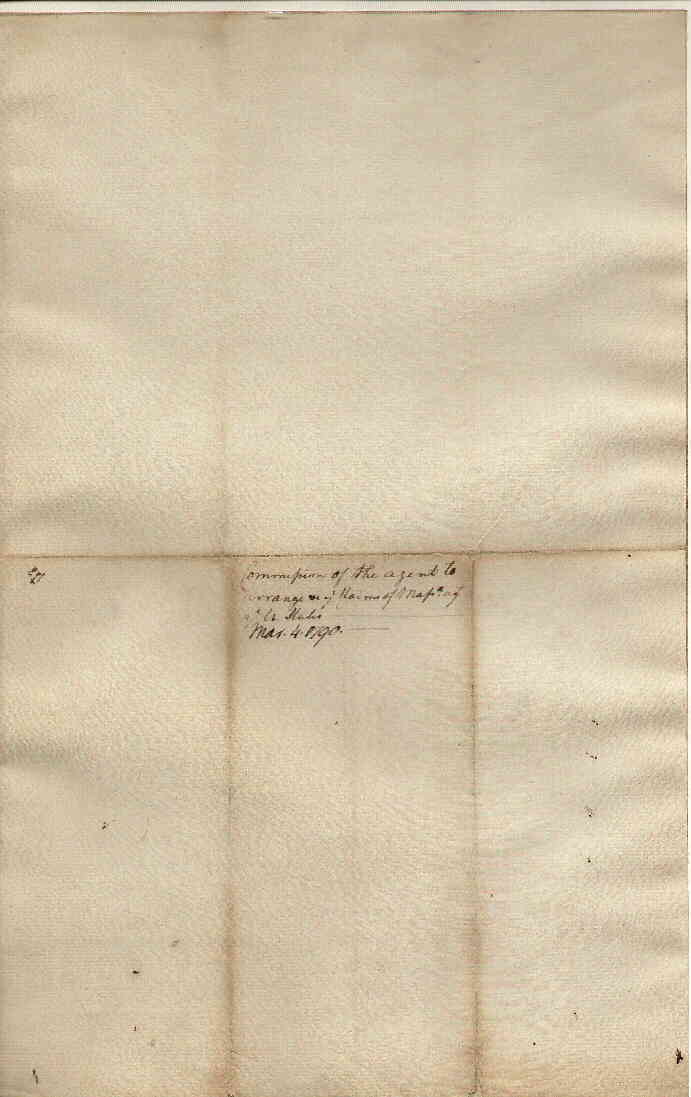 Commission of the agent to
arrange yͤ Claims of Massᵗˢ agˢᵗ
yͤ U. States
Mar. 4. 1790.